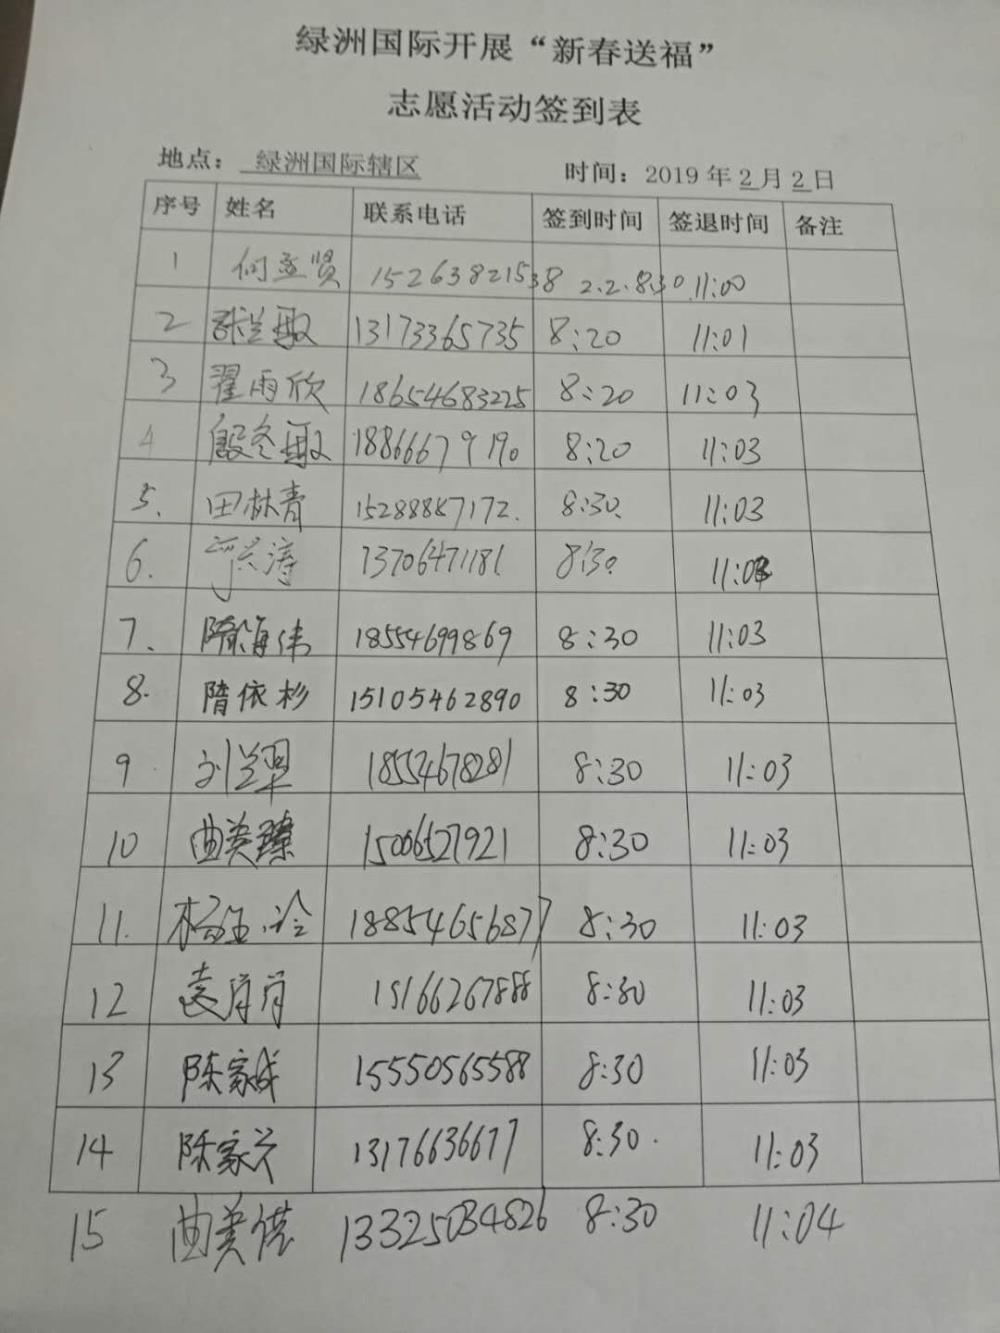 绿洲国际开展“新春送福”
志愿活动签到表
地点： 绿洲国际辖区 时间：2019 年 2 月 2 日
序号 姓名 联系电话 签到时间 签退时间 备注
1 何孟贤 15263821538 2.2.8:30 11:00
2 张兰敏 13173365735 8:20 11:01
3 翟雨欣 18654683225 8:20 11:03
4 殷冬敏 18866679190 8:20 11:03
5. 田林青 15288887172. 8:30. 11:03
6. 13706471181 8:30 11:03
7. 隋海伟 18554699869 8:30 11:03
8. 隋依杉 15105462890 8:30 11:03
9 刘兰翠 18554678281 8:30 11:03
10 曲美臻 15006527921 8:30 11:03
11. 杨玉玲 18854656877 8:30 11:03
12 袁肖肖 15166267888 8:30 11:03
13 陈家成 15550565588 8:30 11:03
14 陈家兴 13176636677 8:30. 11:03
15 曲美锘 13325034826 8:30 11:04